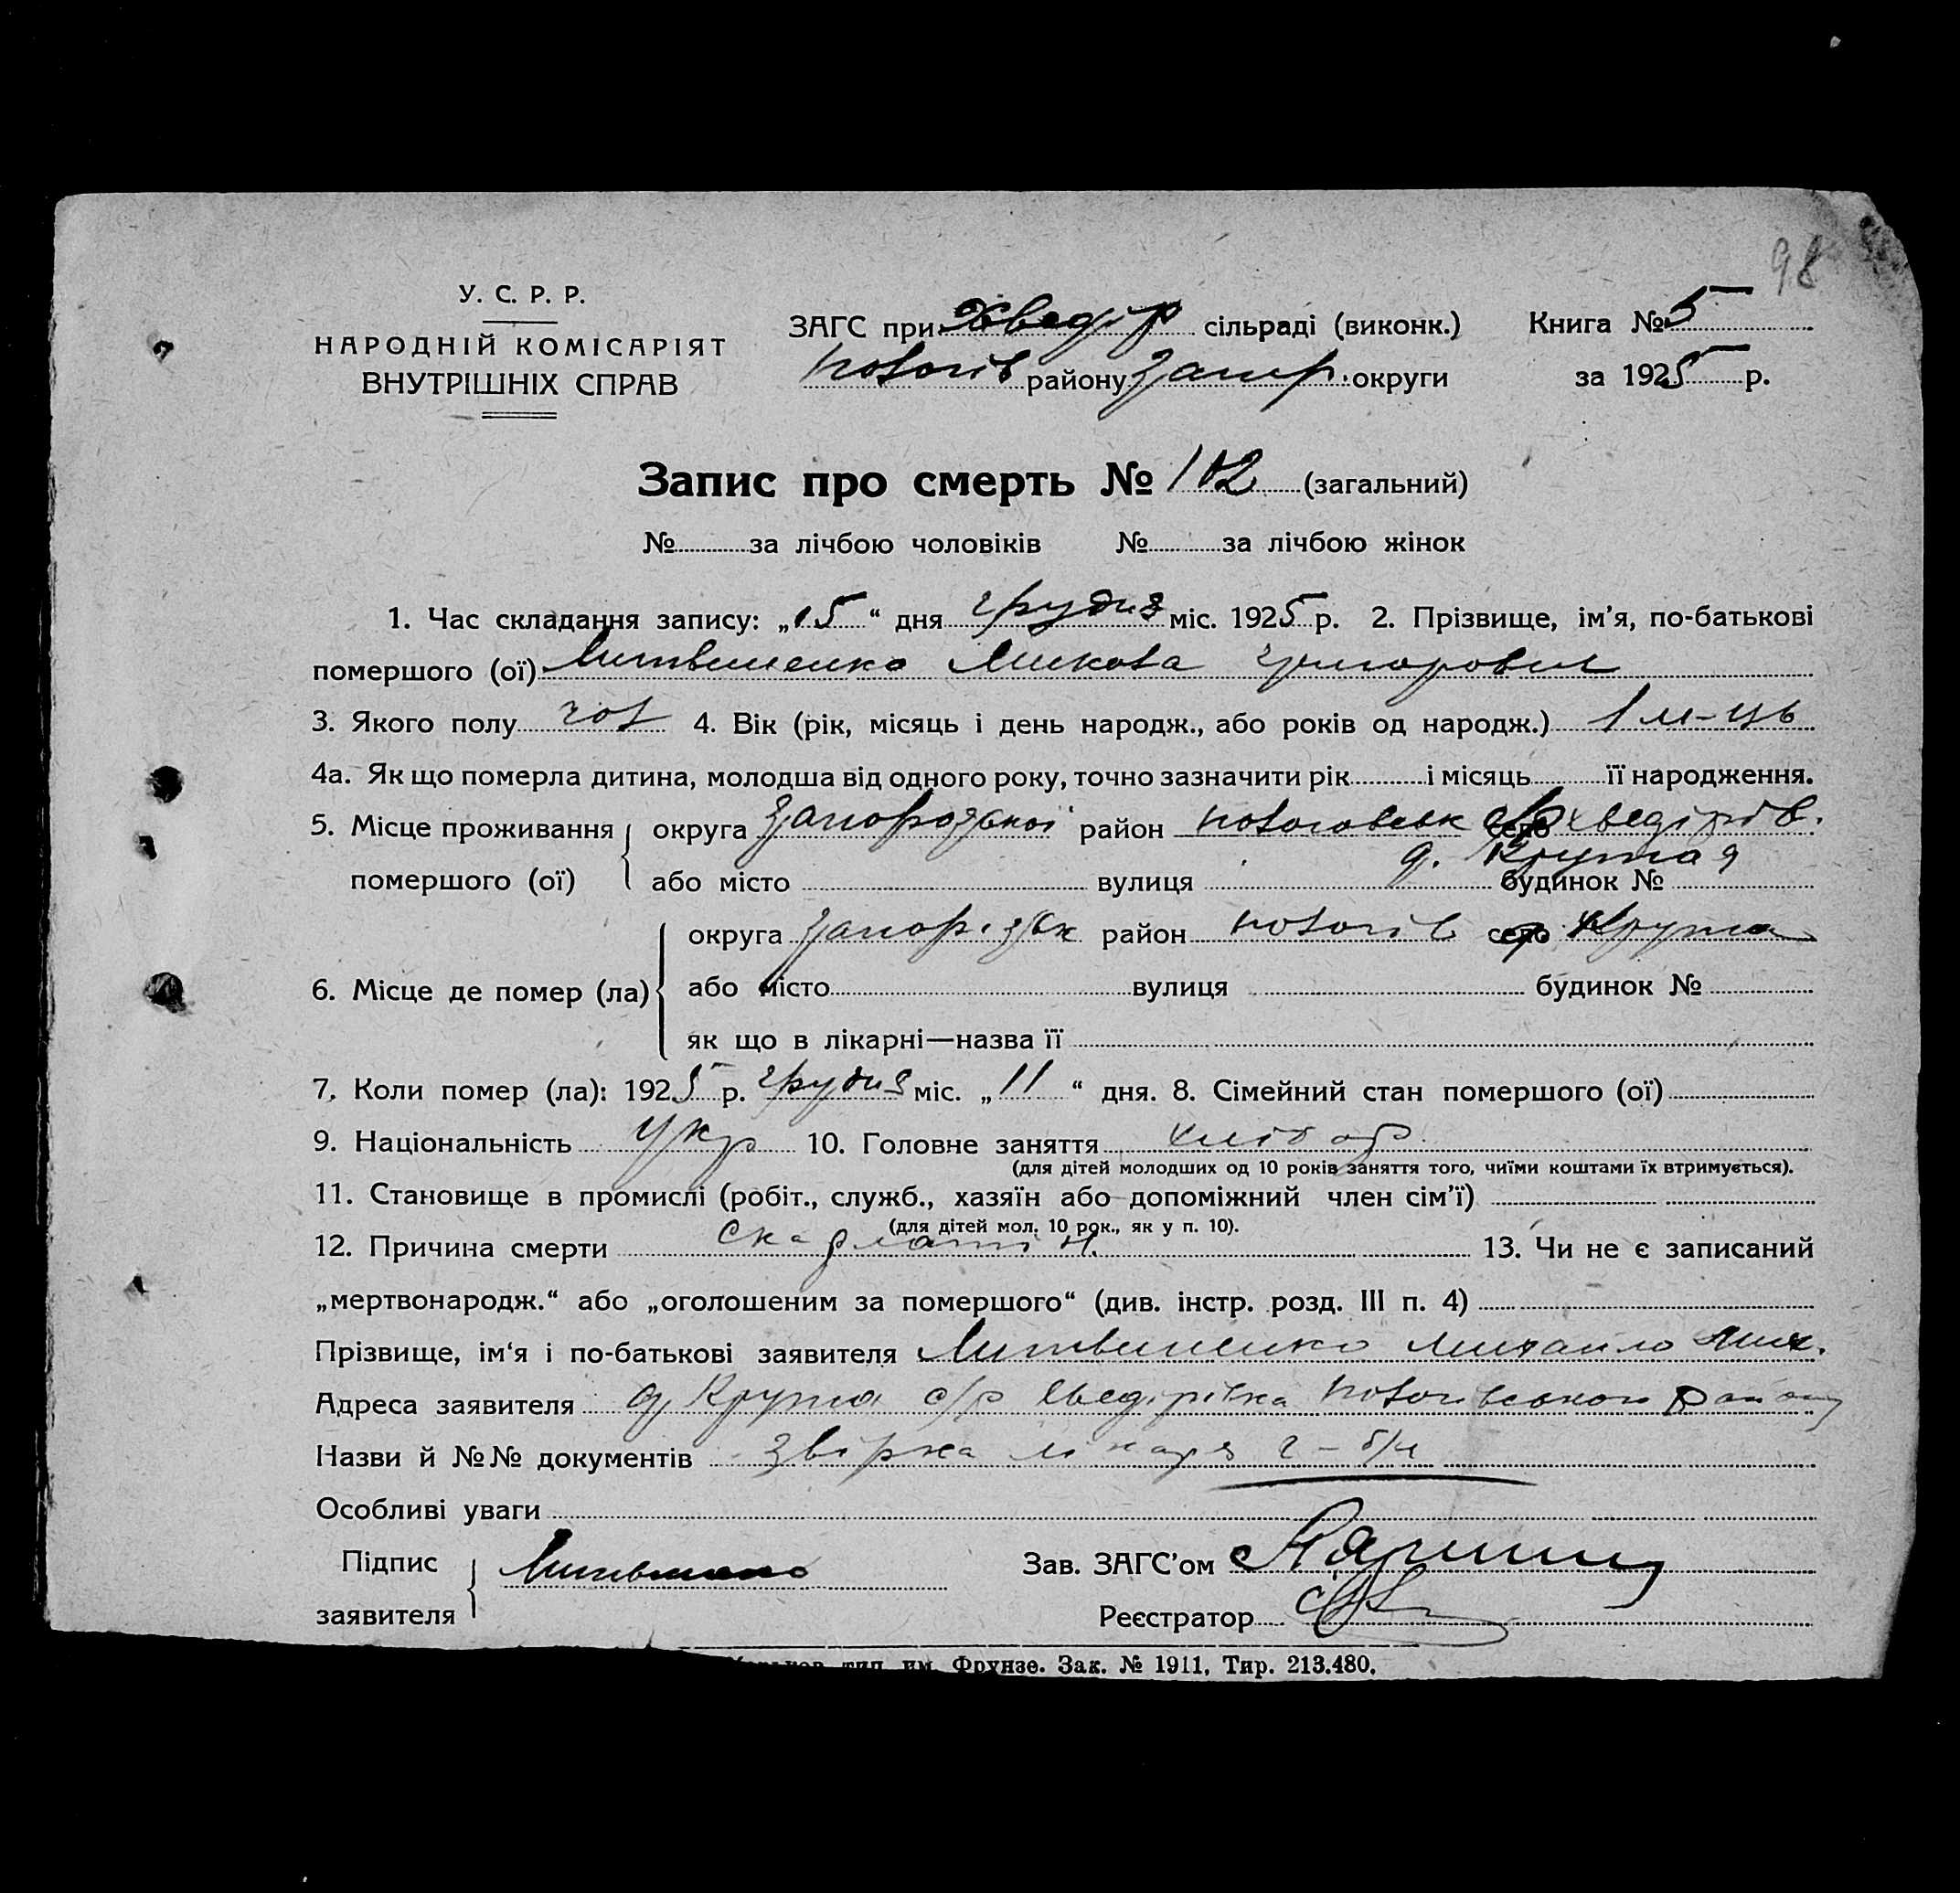 98
У. С. Р. Р.
НАРОДНІЙ КОМІСАРІЯТ
ВНУТРІШНІХ СПРАВ
ЗАГС при Хведір сільраді (виконк.) Книга № 5
Пологів району Запор. округи за 1925 р.
Запис про смерть № 102 (загальний)
№ за лічбою чоловіків № за лічбою жінок
1. Час складання запису: „15“ дня грудня міс. 1925 р. 2. Прізвище, ім'я, по-батькові
помершого (ої) Литвиненко Микола Григорович
3. Якого полу чол 4. Вік (рік, місяць і день народж., або років од народж.) 1 м-ць
4а. Як що померла дитина, молодша від одного року, точно зазначити рік і місяць її народження.
5. Місце проживання округа Запорозької район Пологовськ с/р Хведірів.
д. Крутая
помершого (ої) або місто вулиця будинок №
округа Запоріжк район Пологів село Крута
6. Місце де помер (ла) або місто вулиця будинок №
як що в лікарні—назва її
7. Коли помер (ла): 1925 р. грудня міс. „11“ дня. 8. Сімейний стан помершого (ої)
9. Національність Укр 10. Головне заняття хлібор.
(для дітей молодших од 10 років заняття того, чиїми коштами їх втримується).
11. Становище в промислі (робіт., служб., хазяїн або допоміжний член сім'ї)
(для дітей мол. 10 рок., як у п. 10).
12. Причина смерти Скарлатін. 13. Чи не є записаний
„мертвонародж.“ або „оголошеним за помершого“ (див. інстр. розд. III п. 4)
Прізвище, ім'я і по-батькові заявителя Литвиненко Михайло Мих.
Адреса заявителя д. Крута с/р Хведірівка Пологівського Району
Назви й №№ документів Звірка лікаря г – б/н
Особливі уваги
Підпис Литвиненко Зав. ЗАГС'ом
заявителя Реєстратор
тип. им. Фрунзе. Зак. № 1911, Тир. 213.480.